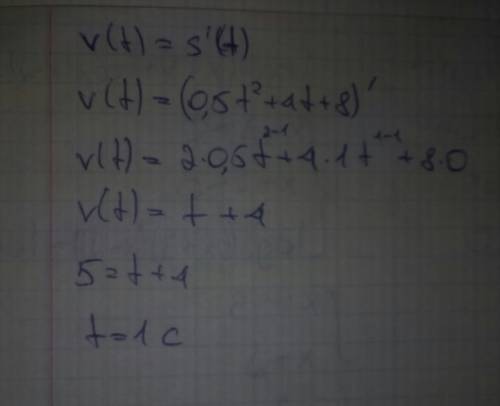 v(t) = s'(t)
v(t) = (0,5t²+4t+8)'
v(t) = 2·0,5t²⁻¹+4·1t¹⁻¹+8·0
v(t) = t + 4
5 = t + 4
t = 1 c